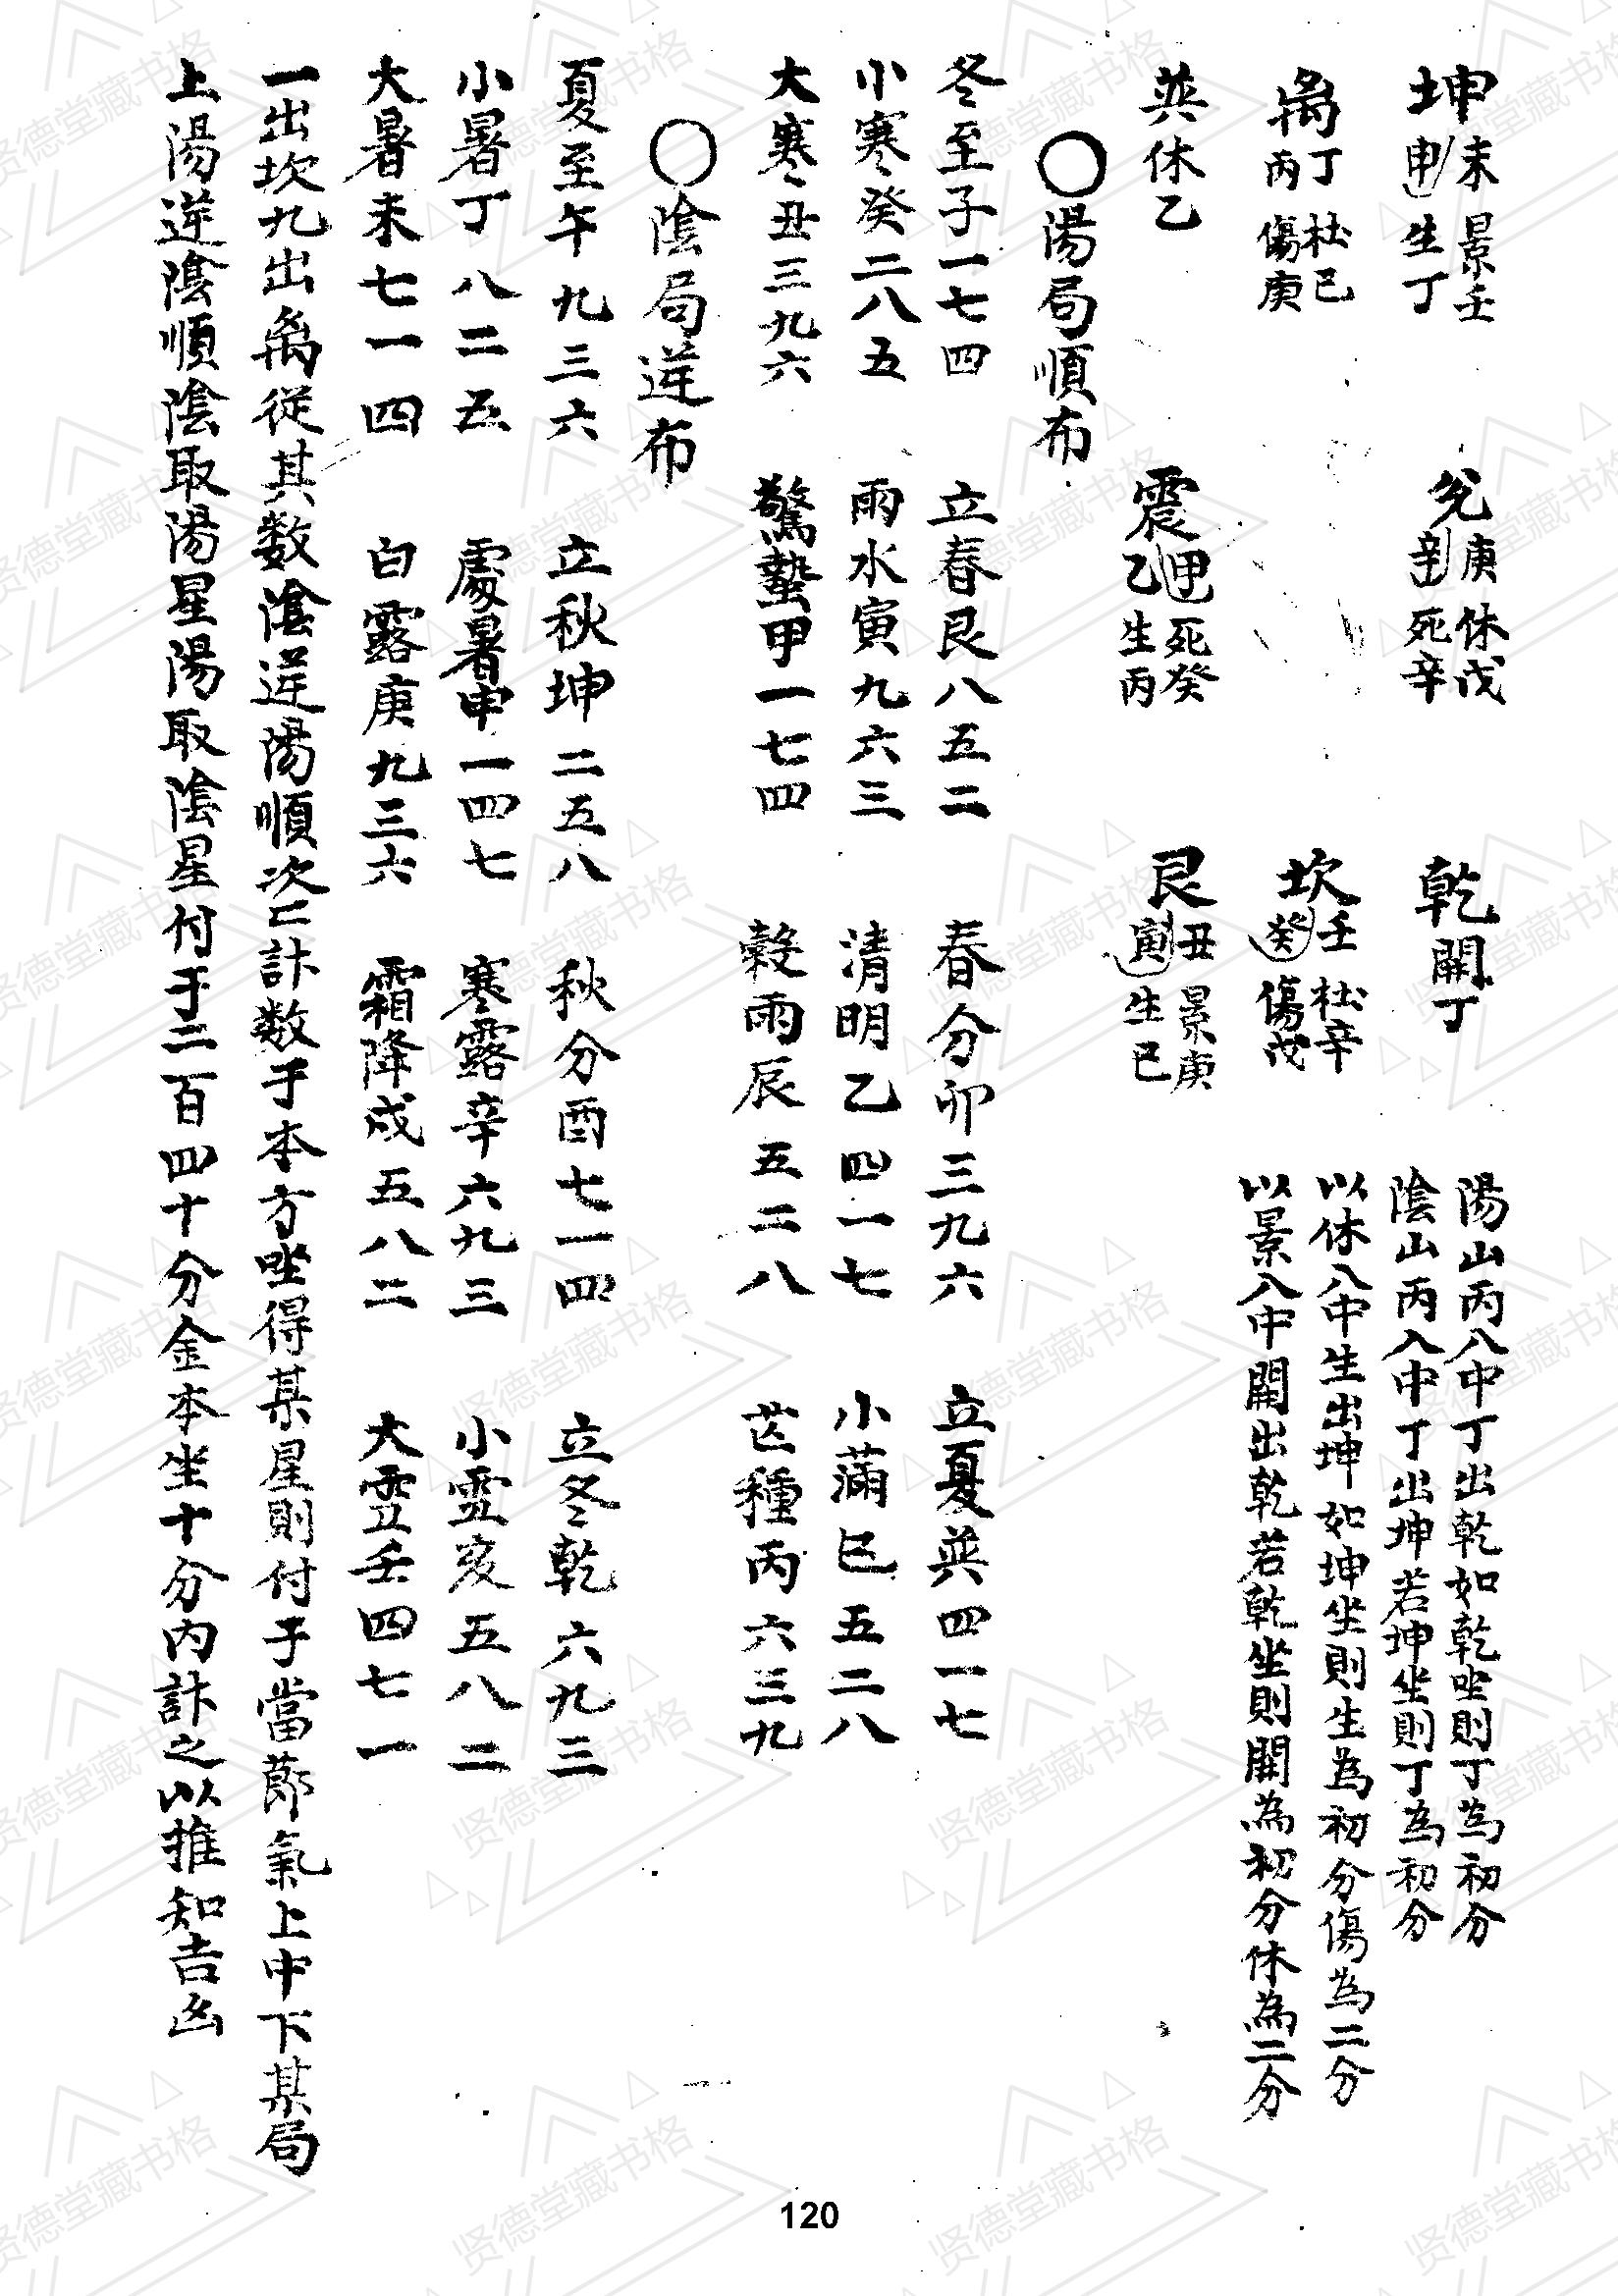 坤 未 景壬
申 生丁
兌 庚 休戊
辛 死辛
乾 開丁
陽山丙入中丁出乾如乾坐則丁為初分
陰山丙入中丁出坤若坤坐則丁為初分
离 丁 杜己
丙 傷庚
坎 壬 杜辛
癸 傷戊
以休入中生出坤如坤坐則生為初分傷為二分
以景入中開出乾若乾坐則開為初分休為二分
巽休乙
震 甲 死癸
乙 生丙
艮 丑 景庚
寅 生己
〇陽局順布
冬至子一七四 立春艮八五二 春分卯三九六 立夏巽四一七
小寒癸二八五 雨水寅九六三 清明乙四一七 小滿巳五二八
大寒丑三九六 驚蟄甲一七四 穀雨辰五二八 芒種丙六三九
〇陰局逆布
夏至午九三六 立秋坤二五八 秋分酉七一四 立冬乾六九三
小暑丁八二五 處暑申一四七 寒露辛六九三 小雪亥五八二
大暑未七一四 白露庚九三六 霜降戌五八二 大雪壬四七一
一出坎九出离從其数陰逆陽順次二計数于本方坐得某星則付于當節氣上中下某局
上陽逆陰順陰取陽星陽取陰星付于二百四十分金本坐十分内計之以推知吉凶
120
贤德堂藏书格